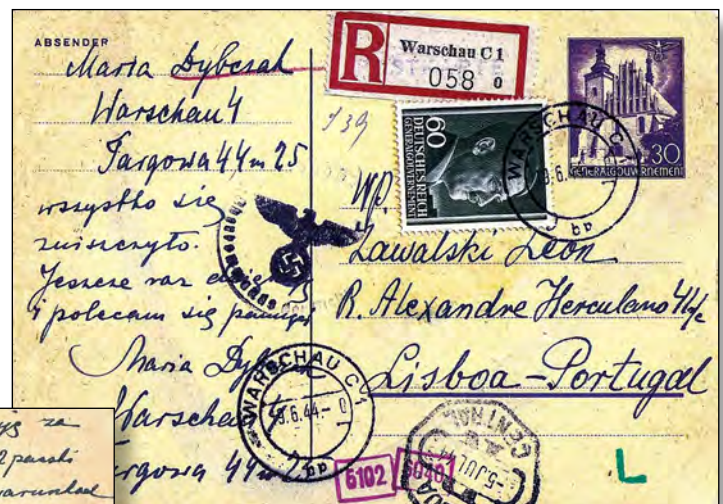 ABSENDER
Maria Dybczak
Warschau 4
Targowa 44 m 25
wszystko się
zniszczyło.
Jeszcze raz
i polecam się pamięci
Maria
Warschau
Targowa 44
R
Warschau C 1
058 o
139
60
DEUTSCHES REICH
GENERALGOUVERNEMENT
30
GENERALGOUVERNEMENT
WARSCHAU C 1
WP.
Zawalski Leon
R. Alexandre Herculano
Lisboa - Portugal
WARSCHAU C 1
9.6.44.- 0
bb
6102
5040
CENTRAL
-5 JUL 44
L
za